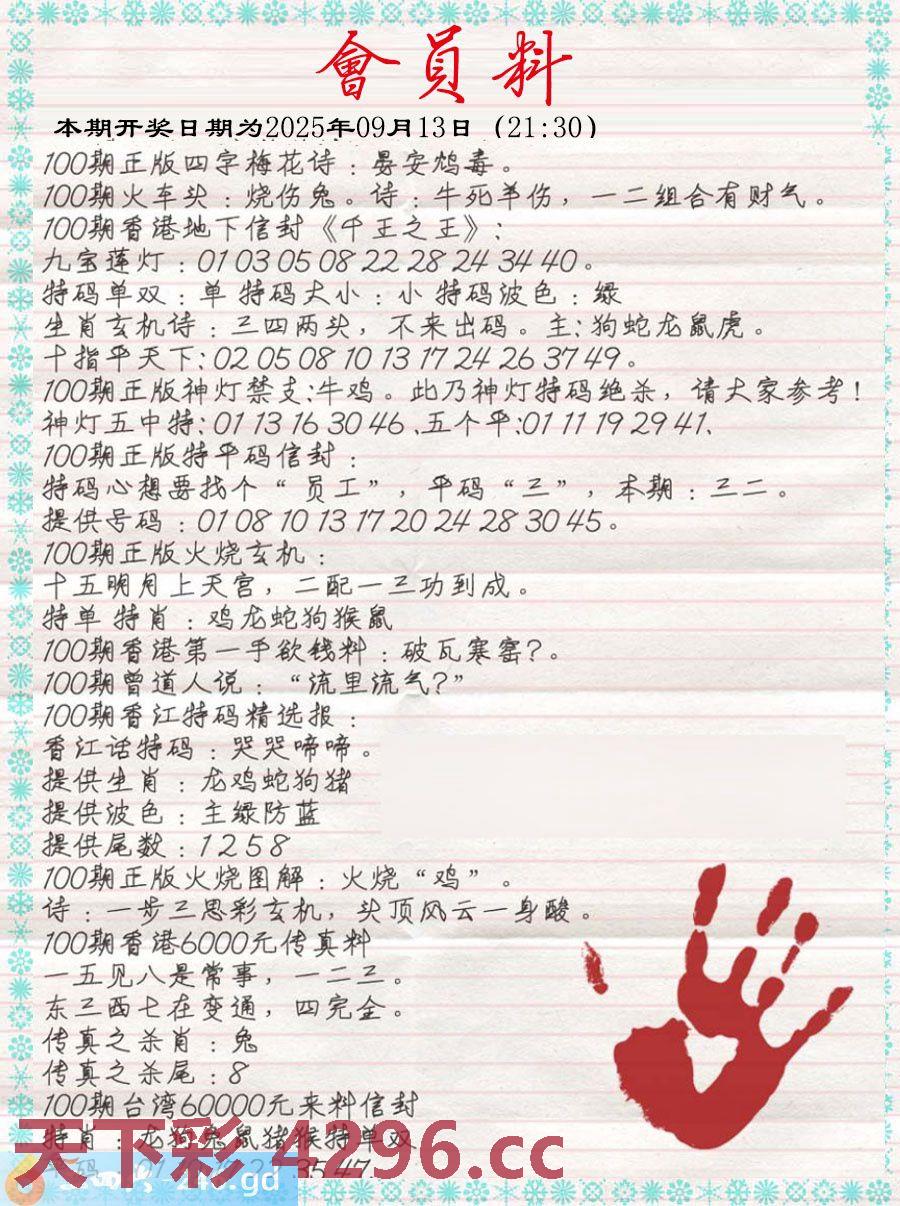 會員料
本期开奖日期为2025年09月13日（21:30）
100期正版四字梅花诗：晏安鸩毒。
100期火车头：烧伤兔。诗：牛死羊伤，一二组合有财气。
100期香港地下信封《千王之王》：
九宝莲灯：01 03 05 08 22 28 24 34 40。
特码单双：单 特码大小：小 特码波色：绿
生肖玄机诗：三四两头，不来出码。主：狗蛇龙鼠虎。
十指平天下：02 05 08 10 13 17 24 26 37 49。
100期正版神灯禁支:牛鸡。此乃神灯特码绝杀，请大家参考！
神灯五中特：01 13 16 30 46、五个平:01 11 19 29 41、
100期正版特平码信封：
特码心想要找个“员工”，平码“三”，本期：三二。
提供号码：01 08 10 13 17 20 24 28 30 45。
100期正版火烧玄机：
十五明月上天宫，二配一三功到成。
特单 特肖：鸡龙蛇狗猴鼠
100期香港第一手欲钱料：破瓦寒窑?。
100期曾道人说：“流里流气?”
100期香江特码精选报：
香江话特码：哭哭啼啼。
提供生肖：龙鸡蛇狗猪
提供波色：主绿防蓝
提供尾数：1 2 5 8
100期正版火烧图解：火烧“鸡”。
诗：一步三思彩玄机，头顶风云一身酸。
100期香港6000元传真料
一五见八是常事，一二三。
东三西七在变通，四完金。
传真之杀肖：兔
传真之杀尾：8
100期台湾60000元来料信封
特肖：龙狗兔鼠猪猴特单双
天下彩.4296.cc
35 47
.gd